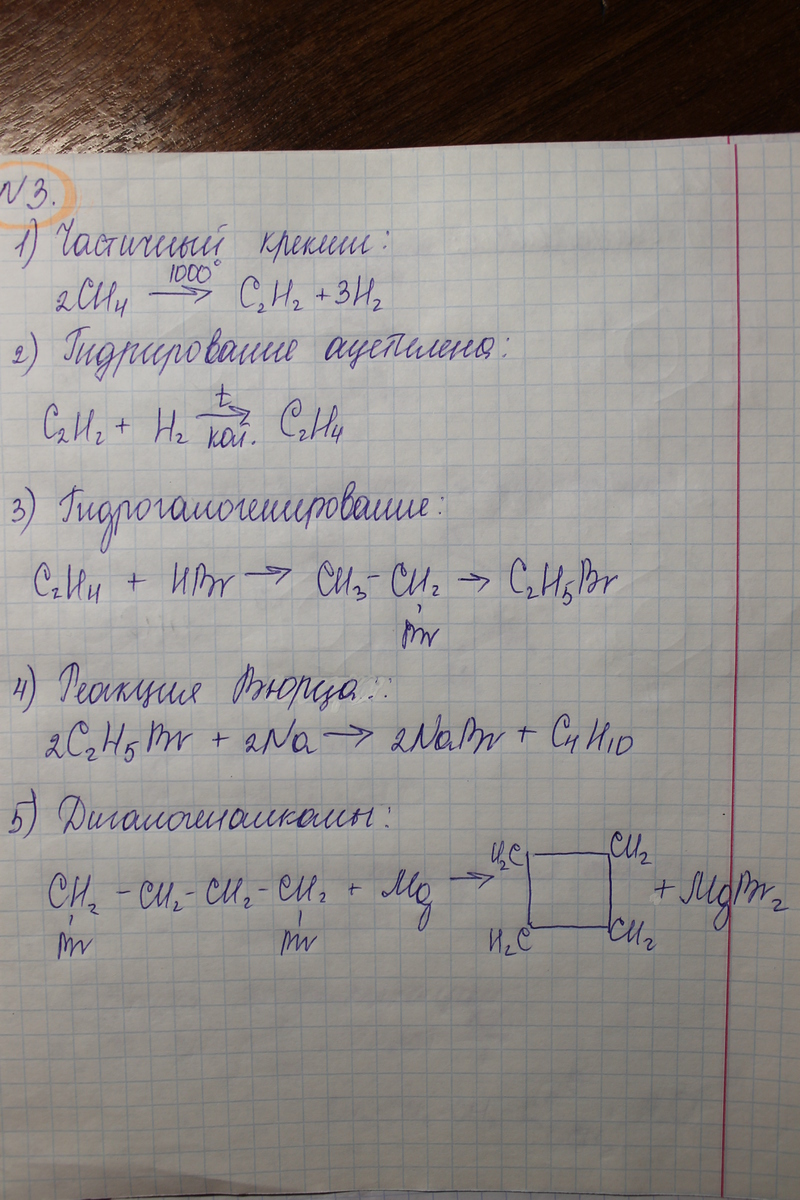 N3.
1) Частичный крекинг:
2CH₄ 1000° → C₂H₂ + 3H₂
2) Гидрирование ацетилена:
C₂H₂ + H₂ t → кат. C₂H₄
3) Гидрогалогенирование:
C₂H₄ + HBr → CH₃ - CH₂ → C₂H₅Br
Br
4) Реакция Вюрца:
2C₂H₅Br + 2Na → 2NaBr + C₄H₁₀
5) Дигалогеналканы:
H₂C CH₂
CH₂ - CH₂ - CH₂ - CH₂ + Mg → + MgBr₂
Br Br H₂C CH₂